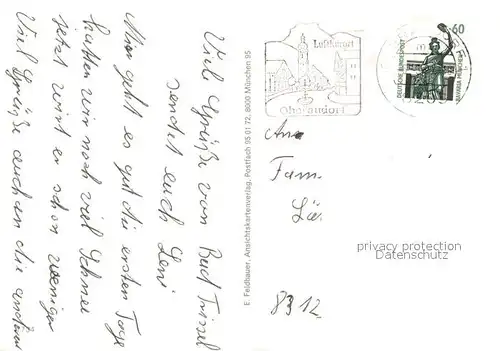 Viel Grüße von Bad Trissl
sendet euch Leni
Mir geht es gut die ersten Tage
hatten wir noch viel Schnee
jetzt wird er schon weniger
Viel Grüße auch an die anderen
E. Feldbauer, Ansichtskartenverlag, Postfach 95 01 72, 8000 München 95
Luftkurort
Oberaudorf
60
DEUTSCHE BUNDESPOST
BAVARIA MÜNCHEN
An
Fam.
8312
privacy protection
Datenschutz